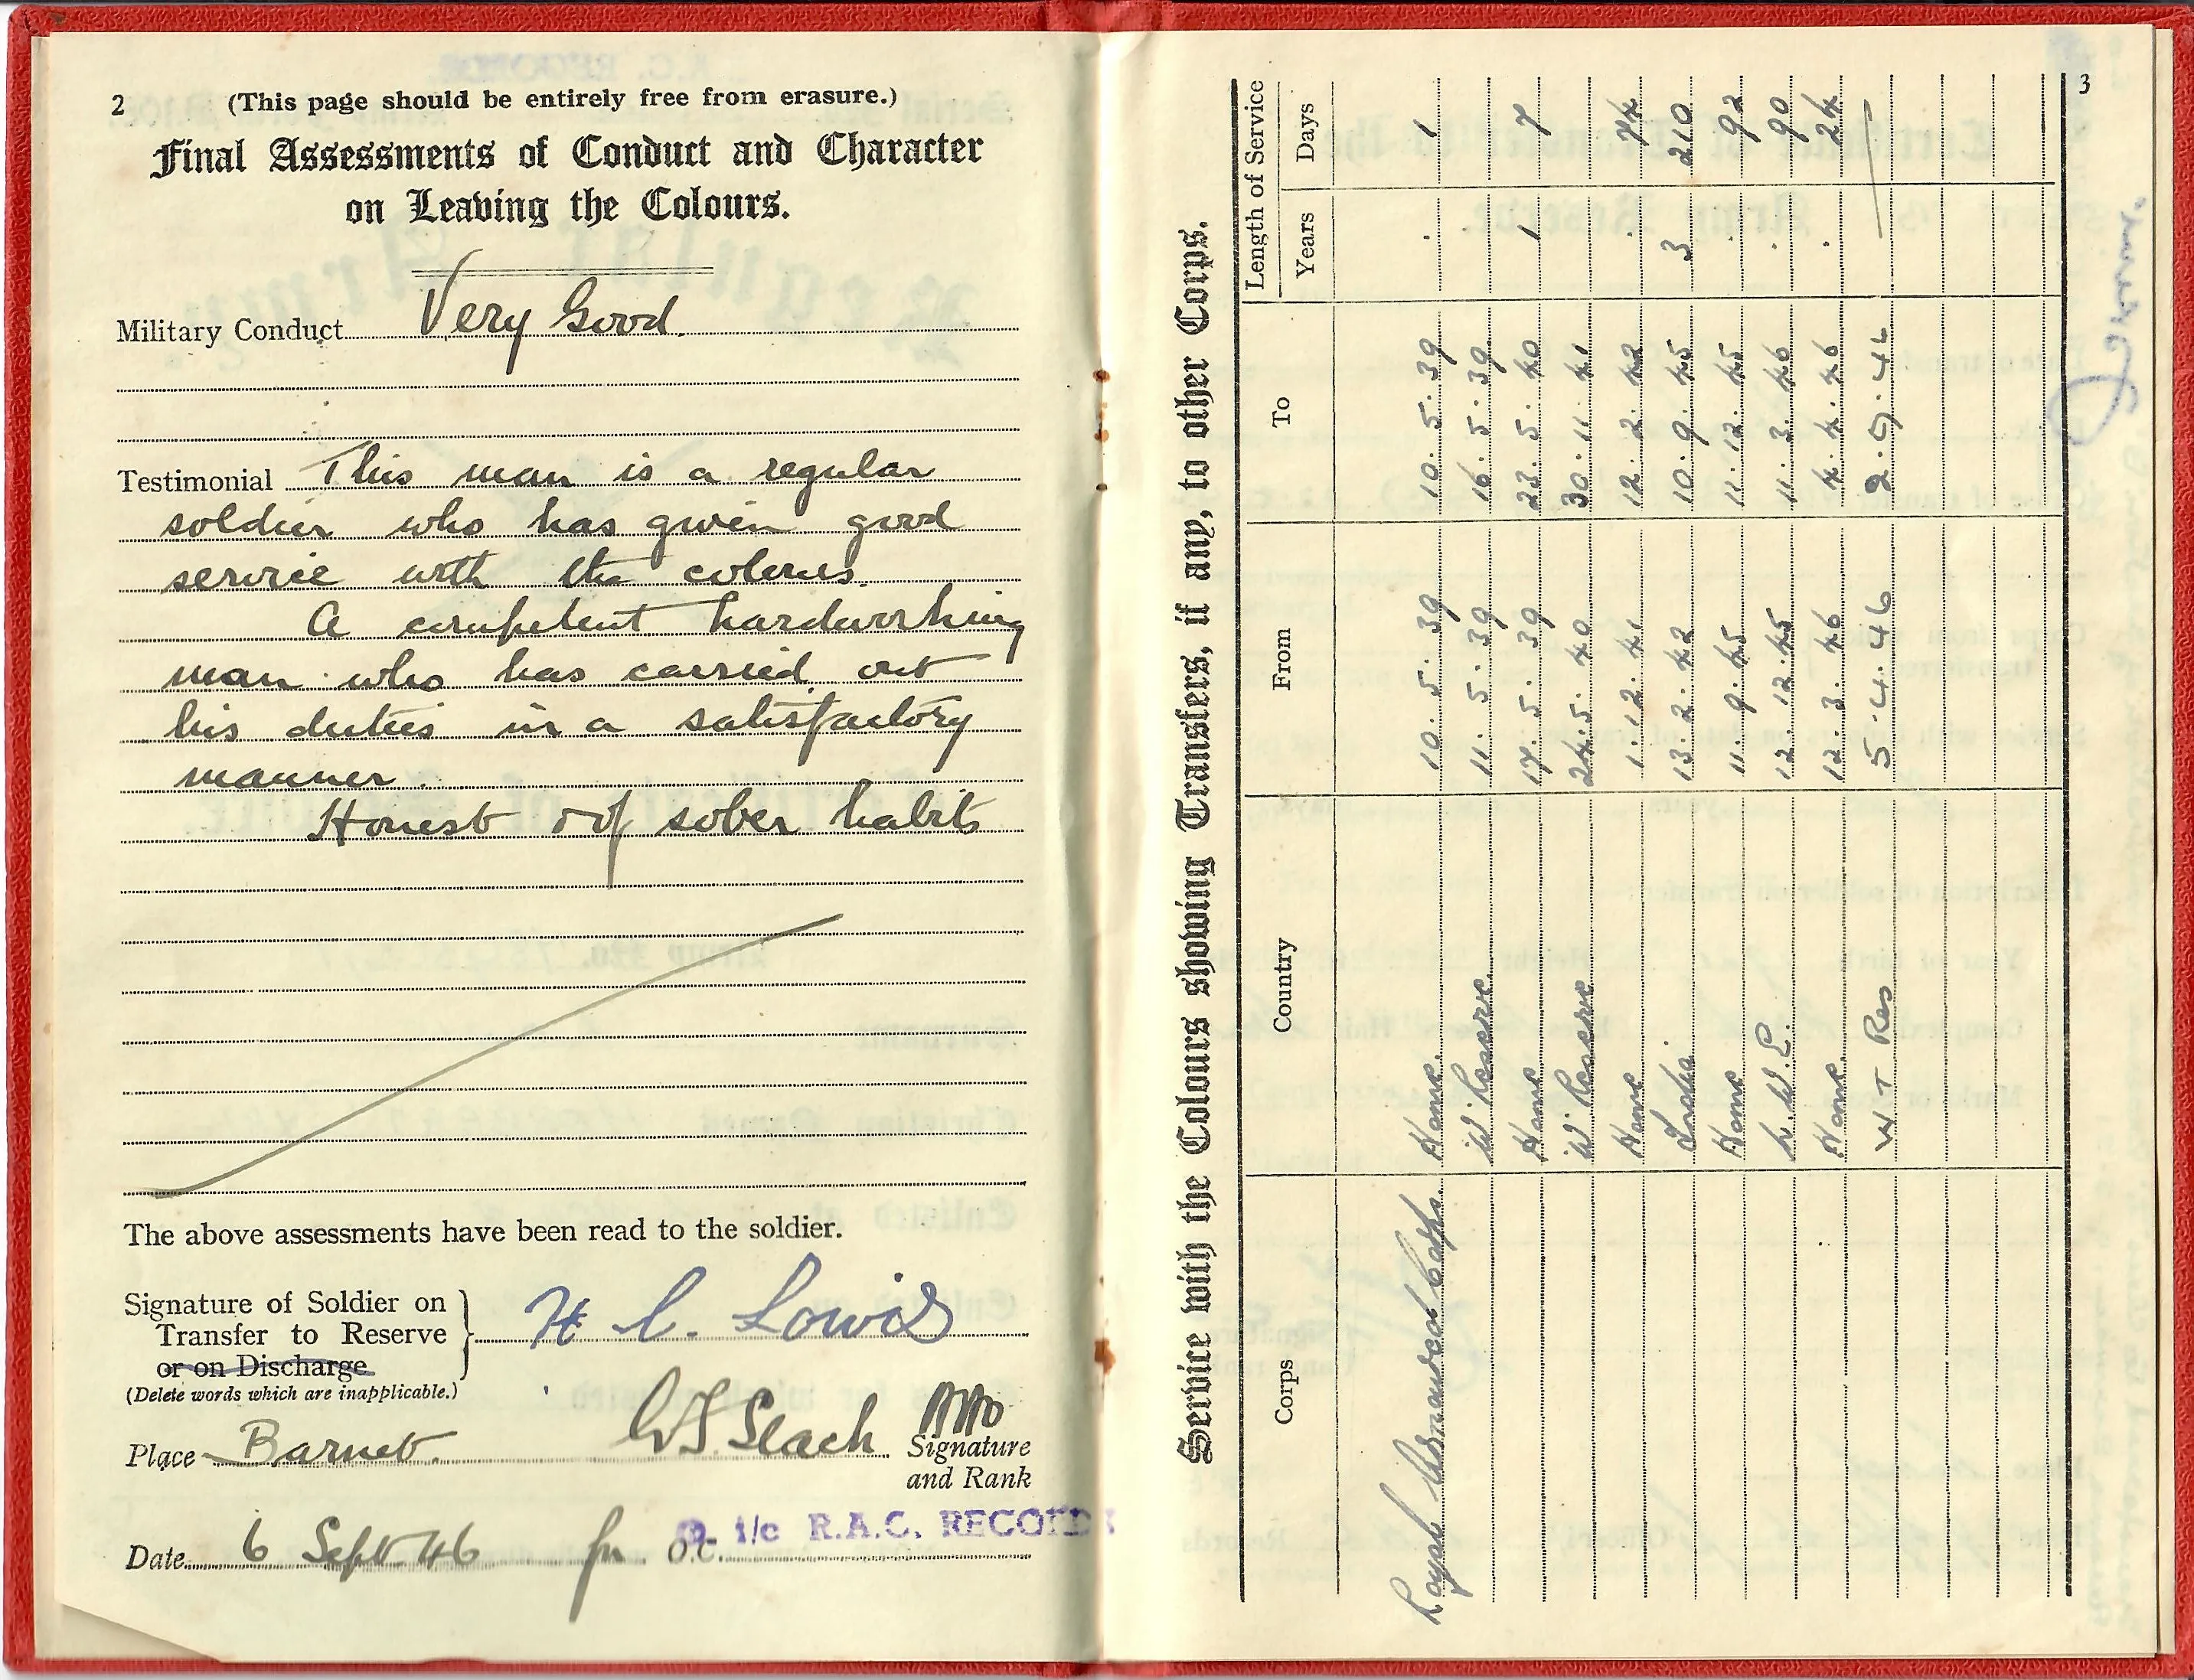 2 (This page should be entirely free from erasure.)
Final Assessments of Conduct and Character
on Leaving the Colours.
Military Conduct Very Good.
Testimonial This man is a regular
soldier who has given good
service with the colours.
A competent hardworking
man who has carried out
his duties in a satisfactory
manner.
Honest & of sober habits
The above assessments have been read to the soldier.
Signature of Soldier on
Transfer to Reserve
or on Discharge
(Delete words which are inapplicable.)
H C. Lowis
Place Barnet.
Signature
and Rank
Date 6 Sept 46 for O.C. i/c R.A.C. RECORDS
3
Service with the Colours showing Transfers, if any, to other Corps.
Corps Country From To Length of Service
Years Days
Royal Armoured Corps. Home. 10. 5. 39 10. 5. 39 . 1
W. Reserve. 11. 5. 39 16. 5. 39.
Home 17. 5. 39 23. 5. 40 1 7
W. Reserve 24. 5. 40 30. 11. 41
Home 1. 12. 41 12. 2. 42 . 74
India. 13. 2. 42 10. 9. 45 3 210
Home 11. 9. 45 11. 12. 45 . 92
N. W. E. 12. 12. 45 11. 3. 46 . 90
Home. 12. 3. 46 4. 4. 46 . 24
W + Res 5. 4. 46